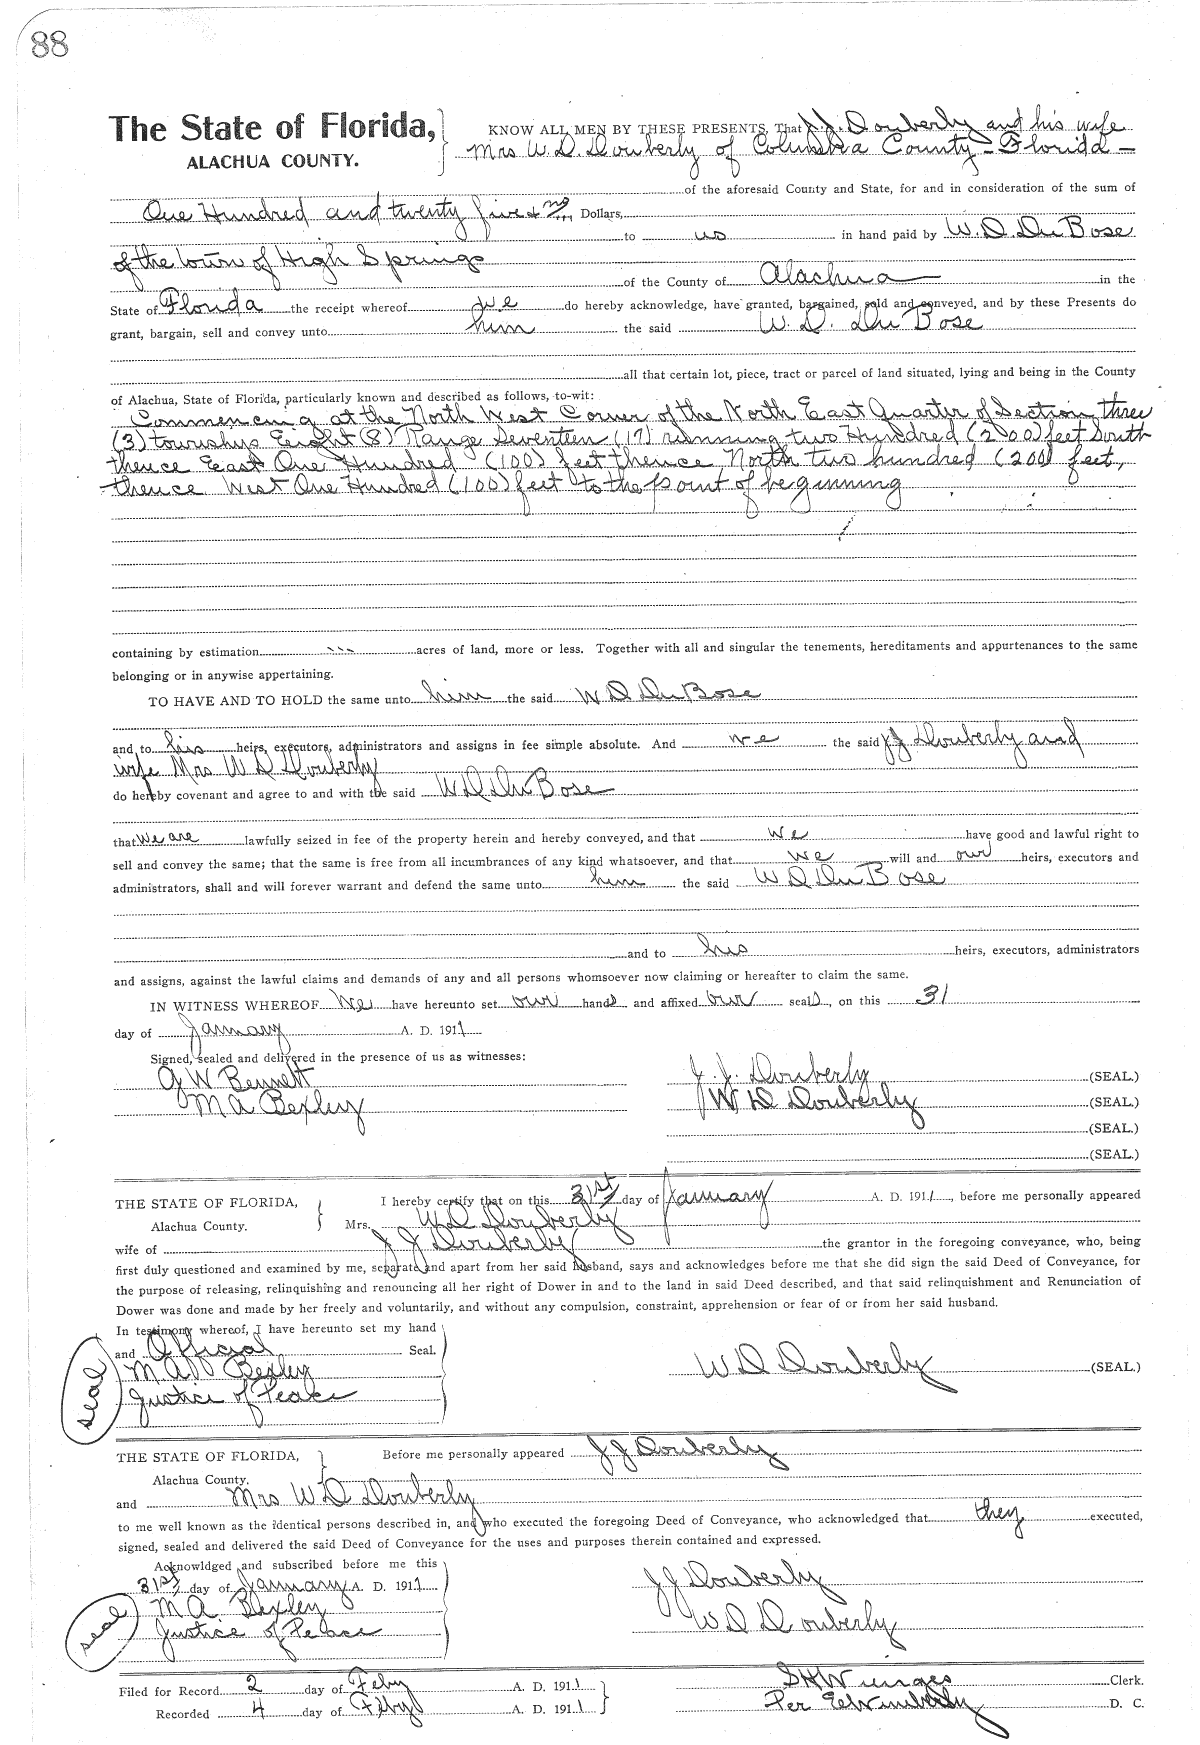 88
The State of Florida,
ALACHUA COUNTY.
KNOW ALL MEN BY THESE PRESENTS, That J.J. Douberly and his wife
Mrs W.D. Douberly of Columbia County - Florida -
of the aforesaid County and State, for and in consideration of the sum of
One Hundred and twenty five + no/ Dollars,
to us in hand paid by W.D. DuBose
of the town of High Springs
of the County of Alachua in the
State of Florida the receipt whereof we do hereby acknowledge, have granted, bargained, sold and conveyed, and by these Presents do
grant, bargain, sell and convey unto him the said W. D. Du Bose
all that certain lot, piece, tract or parcel of land situated, lying and being in the County
of Alachua, State of Florida, particularly known and described as follows, to-wit:
Commencing at the North West Corner of the North East Quarter of Section three
(3) townshyp Eight (8) Range Seventeen (17) running two Hundred (200) feet South
thence East One Hundred (100) feet thence North two hundred (200) feet,
thence West One Hundred (100) feet to the point of beginning
containing by estimation --- acres of land, more or less. Together with all and singular the tenements, hereditaments and appurtenances to the same
belonging or in anywise appertaining.
TO HAVE AND TO HOLD the same unto him the said W D DuBose
and to his heirs, executors, administrators and assigns in fee simple absolute. And we the said JJ Douberly and
wife Mrs W D Douberly
do hereby covenant and agree to and with the said W D Du Bose
that we are lawfully seized in fee of the property herein and hereby conveyed, and that we have good and lawful right to
sell and convey the same; that the same is free from all incumbrances of any kind whatsoever, and that we will and our heirs, executors and
administrators, shall and will forever warrant and defend the same unto him the said W D Du Bose
and to his heirs, executors, administrators
and assigns, against the lawful claims and demands of any and all persons whomsoever now claiming or hereafter to claim the same.
IN WITNESS WHEREOF We have hereunto set our hands and affixed our seals, on this 31
day of January A. D. 1911
Signed, sealed and delivered in the presence of us as witnesses:
W Bennett J. J. Douberly (SEAL.)
M A Bexley W D Douberly (SEAL.)
(SEAL.)
(SEAL.)
THE STATE OF FLORIDA,
Alachua County.
I hereby certify that on this 31st day of January A. D. 1911, before me personally appeared
Mrs. W D Douberly
wife of J J Douberly the grantor in the foregoing conveyance, who, being
first duly questioned and examined by me, separate and apart from her said husband, says and acknowledges before me that she did sign the said Deed of Conveyance, for
the purpose of releasing, relinquishing and renouncing all her right of Dower in and to the land in said Deed described, and that said relinquishment and Renunciation of
Dower was done and made by her freely and voluntarily, and without any compulsion, constraint, apprehension or fear of or from her said husband.
In testimony whereof, I have hereunto set my hand
and Official Seal.
M A Bexley W D Douberly (SEAL.)
Justice of Peace
seal
THE STATE OF FLORIDA,
Alachua County.
Before me personally appeared J J Douberly
and Mrs W D Douberly
to me well known as the identical persons described in, and who executed the foregoing Deed of Conveyance, who acknowledged that they executed,
signed, sealed and delivered the said Deed of Conveyance for the uses and purposes therein contained and expressed.
Acknowldged and subscribed before me this
31st day of January A. D. 1911 J J Douberly
M A Bexley W D Douberly
Justice of Peace
seal
Filed for Record 2 day of Feby A. D. 1911 S H Wienges Clerk.
Recorded 4 day of Feby A. D. 1911 Per E Wimberly D. C.